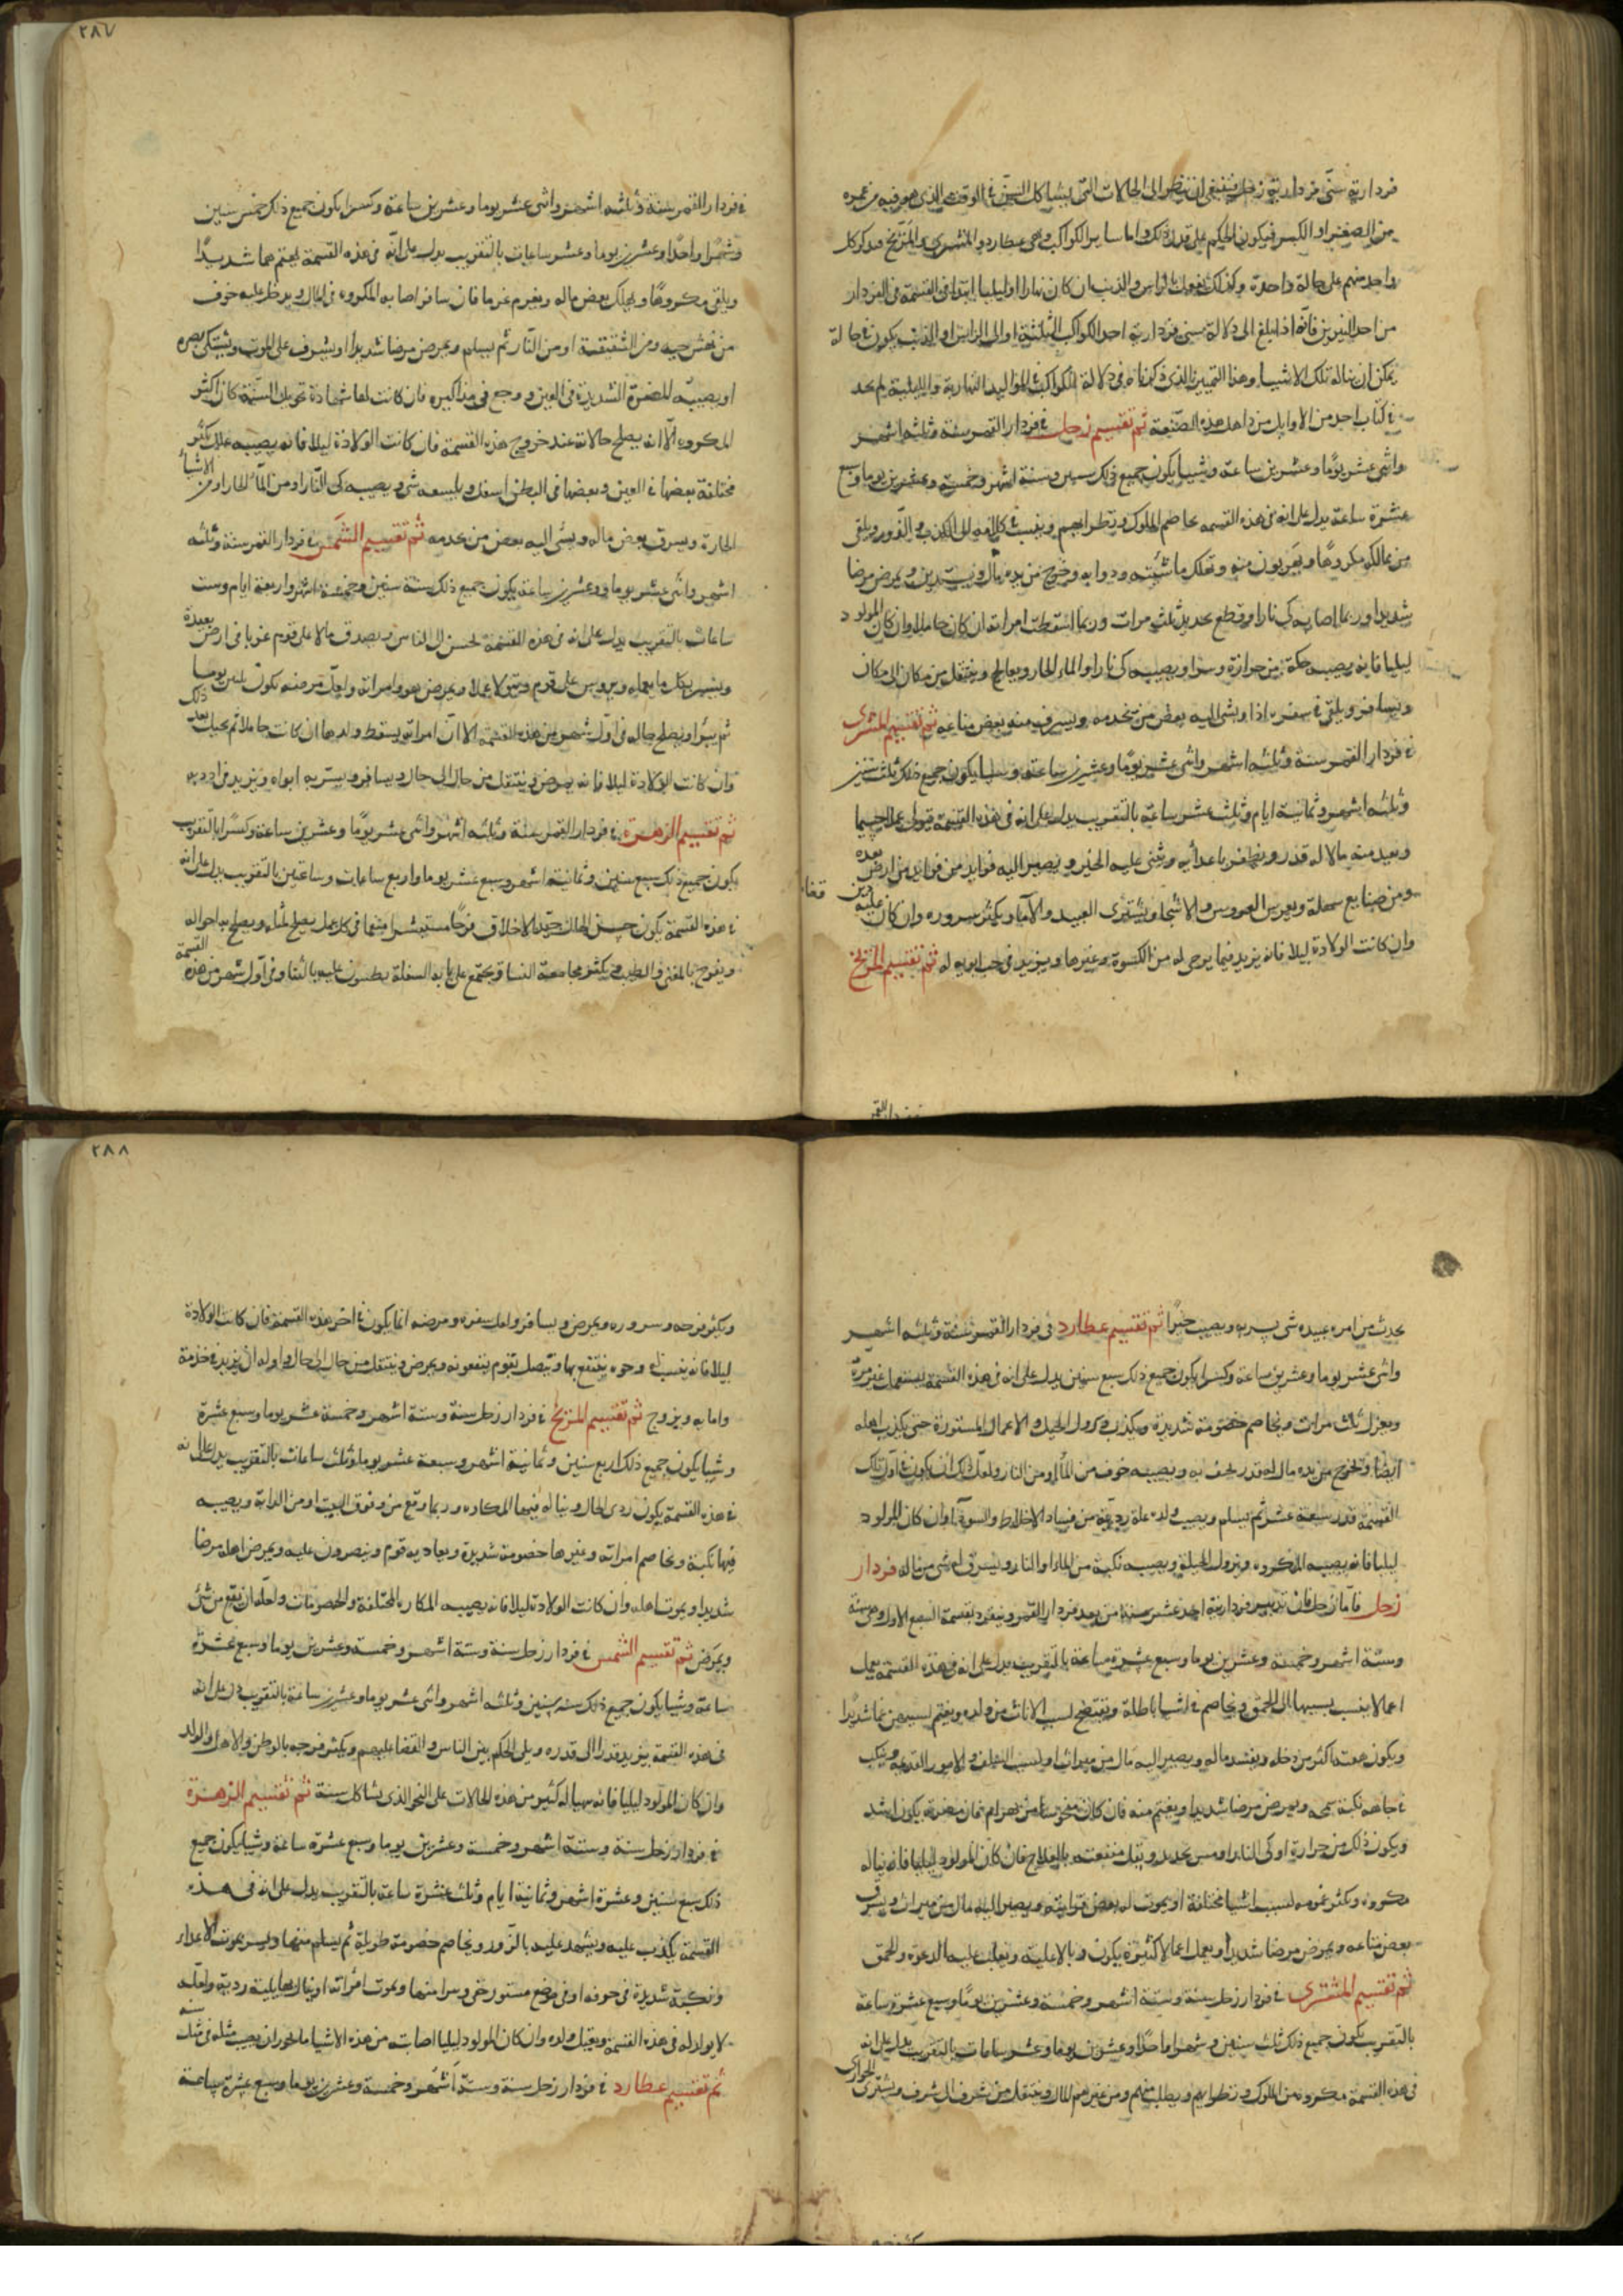 فردارية سنى فردارية زحل فينبغى ان ينظر الى الحالات التى يشاكل السن فى الوقت الذى هو فيه من عمره
من الصغير او الكبير فيكون الحكم على قدر ذلك واما ساير الكواكب وهى عطارد والمشترى والمريخ فدكر كل
واحد منهم على حالة واحدة وكذلك نقول فى الراس والذنب ان كان نهارا او ليليا ابتدا فى القسمة فى الفردار
من احد النيرين فانه اذا بلغ الى دلالة سنى فردارية احد الكواكب الثلثة او الى الراس او الذنب يكون فى حالة
يمكن ان يناله تلك الاشيا وهذا التمييز الذى ذكرناه فى دلالة الكواكب فى المواليد النهارية والليلية لم نجد
فى كتاب احد من الاوايل من اهل هذه الصنعة ثم تقسيم زحل فى فردار القمر سنة وثلثه اشهر
واثنى عشر يوما وعشرين ساعة وشيا يكون جميع ذلك سنة اشهر وخمسة وعشرين يوما وسبع
عشرة ساعة يدل على انه فى هذه القسمه يخاصم الملوك ونظرايهم وينسب فى كلامه الى الكذب والزور ويلقى
من مماليكه مكروها ويهربون منه وتهلك ماشيته ودوابه ويخرج من يده مال ويستدين ويمرض مرضا
شديدا وربما اصابه كى نار او قطع بحديد ثلث مرات وربما اسقطت امراته ان كان حاملا وان كان المولود
ليليا فانه يصيبه حكة من حرارة وسرا ويصيبه كى نار او الماء الحار ويعالج وينتقل من مكان الى مكان
ويسافر ويلقى فى سفره اذا ويشى اليه بعض من يخدمه ويسرق منه بعض متاعه ثم تقسيم المشترى
فى فردار القمر سنة وثلثه اشهر واثنى عشر يوما وعشرين ساعة وشيا يكون جميع ذلك ثلث سنين
وثلثه اشهر وثمانية ايام وثلث عشر ساعة بالتقريب يدل على انه فى هذه القسمة يتولى عملا جسيما
ويفيد منه مالا له قدر ويظفر باعدايه ويثنى عليه الخير ويصير اليه فوايد من فوايد من ارض بعيده
ومن صنايع سهلة ويغرس الغروس والاشجار ويشترى العبيد والاماء ويكثر سروره وان كان عليه دين قضاه
وان كانت الولادة ليلا فانه يزيد فيما يرجى له من الكسوة وغيرها ويزيد فى حب ابويه له ثم تقسيم المريخ
٢٨٧
فى فردار القمر سنة وثلثه اشهر واثنى عشر يوما وعشرين ساعة وكسرا يكون جميع ذلك خمس سنين
وشهرا واحدا وعشرين يوما وعشر ساعات بالتقريب يدل على انه فى هذه القسمة يغتم هما شديدا
ويلقى مكروها ويهلك بعض ماله ويغرم غرما فان سافر اصابه المكروه فى المال ويدخل عليه خوف
من نهش حيه ومن الشقيقة او من النار ثم يسلم ويمرض مرضا شديدا ويشرف على الموت ويشتكى بصره
او يصيبه المضرة الشديدة فى العين ووجع فى مذاكيره فان كانت لها شهادة تحويل السنة كان اكثر
المكروه الا انه يصلح حالاته عند خروج هذه القسمة فان كانت الولادة ليلا فانه يصيبه علل كثير
مختلفة بعضها فى العين وبعضها فى البطن اسفل ويلسعه شى ويصيبه كى النار او من الماء الحار او من الاشياء
الحارة ويسرق بعض ماله ويسى اليه بعض من يخدمه ثم تقسيم الشمس فى فردار القمر سنة وثلثه
اشهر واثنى عشر يوما وعشرين ساعة يكون جميع ذلك ستة سنين وخمسة اشهر واربعة ايام وست
ساعات بالتقريب يدل على انه فى هذه القسمة يحسن الى الناس ويصدق مالا على قوم غربا فى ارض بعيدة
ويشهر بكل ما يعمله ويروس على قوم ويتولا عملا ويمرض هو وامراته ولعل مرضه تكون ثلثين يوما
ثم يبرا ويصلح حاله فى اول شهر من هذه القسمة الا ان امراته يسقط ولدها ان كانت حاملا ثم يحبل بعد ذلك
وان كانت الولادة ليلا فانه يمرض وينتقل من حال الى حال ويسافر ويستر به ابواه ويزيد فى ادبه
ثم تقسيم الزهرة فى فردار القمر سنة وثلثه اشهر واثنى عشر يوما وعشرين ساعة وكسرا بالتقريب
يكون جميع ذلك سبع سنين وثمانية اشهر وسبع عشر يوما واربع ساعات وساعتين بالتقريب يدل على انه
فى هذه القسمة يكون حسن الحال جيد الاخلاق فرحا مستبشرا متهما فى كل عمل يصلح لمثله ويصلح به احواله
ويفرح بالمغنى والطيب ويكثر مجامعة النسا ويجتمع على بابه السفلة يطنبون عليه بالثنا وفى اول شهر من هذه القسمة
يحدث من امره عبيده شى يسر به ويصيب خيرا ثم تقسيم عطارد فى فردار القمر سنة وثلثه اشهر
واثنى عشر يوما وعشرين ساعة وكسرا يكون جميع ذلك سبع سنين يدل على انه فى هذه القسمة يستعمل غير مرة
ويعزل ثلث مرات ويخاصم خصومة شديدة ويكذب ويزول الحيل والاعمال المستورة حتى يكذب اهله
ايضا ويخرج من يده مال له قدر يجف به ويصيبه خوف من الماء او من النار ولعل ذلك ان يكون فى اول تلك
القسمة قدر سبعة عشر ثم يسلم ويصيب ولده علة رديئة من فساد الاخلاط والسودا وان كان المولود
ليليا فانه يصيبه المكروه ويزول الحيلة ويصيبه نكبة من الماء او النار ويسرق له شى من ماله فردار
زحل فاما زحل فان تدبير فردارية احد عشر سنة من بعد فردار القمر وينفرد بقسمة السبع الاول وهى سنة
وستة اشهر وخمسة وعشرين يوما وسبع عشرة ساعة بالتقريب يدل على انه فى هذه القسمة يعمل
اعمالا ينسب بسببها الى الحمق ويخاصم فى اشيا باطلة ويفتضح لسبب الاناث من ولده ويغتم بسببهن غما شديدا
ويكون همته اكثر من دخله ويفسد ماله ويصير اليه مال من ميراث او لسبب السلف والامور القديمة وينكب
فى جاهه نكبة سمجة ويمرض مرضا شديدا ويغتم منه فان كان منحوسا من بهرام فان مضرته يكون اشد
ويكون ذلك من حرارة او كى النار او مس بحديد ويقل منفعته بالعلاج فان كان المولود ليليا فانه يناله
مكروه ويكثر غمومه لسبب اشيا مختلفة او يموت له بعض قرابته ويصير اليه مال من ميراث ويسرق
بعض متاعه ويمرض مرضا شديدا ويعمل اعمالا كثيرة يكون وبالا عليه ويغلب عليه الدعوة والحمق
ثم تقسيم المشترى فى فردار زحل سنة وستة اشهر وخمسة وعشرين يوما وسبع عشرة ساعة
بالتقريب يكون جميع ذلك ثلث سنين وشهرا واحدا وعشرين يوما وعشر ساعات بالتقريب يدل على انه
فى هذه القسمة مكروه من الملوك ونظرايهم ويطلب منهم ومن غيرهم المال وينتقل من شرف الى شرف ويشترى الجوارى
٢٨٨
ويكثر فرحه وسروره ويمرض ويسافر ولعل سفره ومرضه انما يكون فى اخر هذه القسمة فان كانت الولادة
ليلا فانه ينسب الى وجوه ينتفع بها ويتصل بقوم ينفعونه ويمرض وينتقل من حال الى حال واوله ان يزيد فى خدمة
وامابه ويزوج ثم تقسيم المريخ فى فردار زحل سنة وستة اشهر وخمسة عشر يوما وسبع عشرة
وشيا يكون جميع ذلك اربع سنين وثمانية اشهر وسبعة عشر يوما وثلث ساعات بالتقريب يدل على انه
فى هذه القسمة يكون ردى الحال ويناله فيها المكاره وربما وقع من فوق البيت او من الدابة ويصيبه
فيها نكبة ويخاصم امراته وغيرها خصومة شديدة ويعاديه قوم وينصرون عليه ويمرض اهله مرضا
شديدا ويموت اهله وان كانت الولادة ليلا فانه يصيبه المكاره المختلفة والخصومات ولعله ان يقع من شى
ويمرض ثم تقسيم الشمس فى فردار زحل سنة وستة اشهر وخمسة وعشرين يوما وسبع عشرة
ساعة وشيا يكون جميع ذلك سته سنين وثلثه اشهر واثنى عشر يوما وعشرين ساعة بالتقريب دل على انه
فى هذه القسمة يزيد قدرا الى قدره ويلى الحكم بين الناس والقضا عليهم ويكثر فرحه بالوطن والاهل والولد
وان كان المولود ليليا فانه يهيا له كثير من هذه الحالات على النحو الذى يشاكل سنة ثم تقسيم الزهرة
فى فردار زحل سنة وستة اشهر وخمسة وعشرين يوما وسبع عشرة ساعة وشيا يكون جميع
ذلك سبع سنين وعشرة اشهر وثمانية ايام وثلث عشرة ساعة بالتقريب يدل على انه فى هذه
القسمة يكذب عليه ويشهد عليه بالزور ويخاصم خصومة طويلة ثم يسلم منها ويسر بموت الاعداء
ونكبة شديدة فى جوفه او فى موضع مستور خفى وسرا منها ويموت امراته او ينالها بلية ردية ولعله
لا يولد له فى هذه القسمة ويقبل ولده وان كان المولود ليليا اصابت من هذه الاشيا ما يجوز ان يصيب مثله فى مثل سنه
ثم تقسيم عطارد فى فردار زحل سنة وستة اشهر وخمسة وعشرين يوما وسبع عشرة ساعة